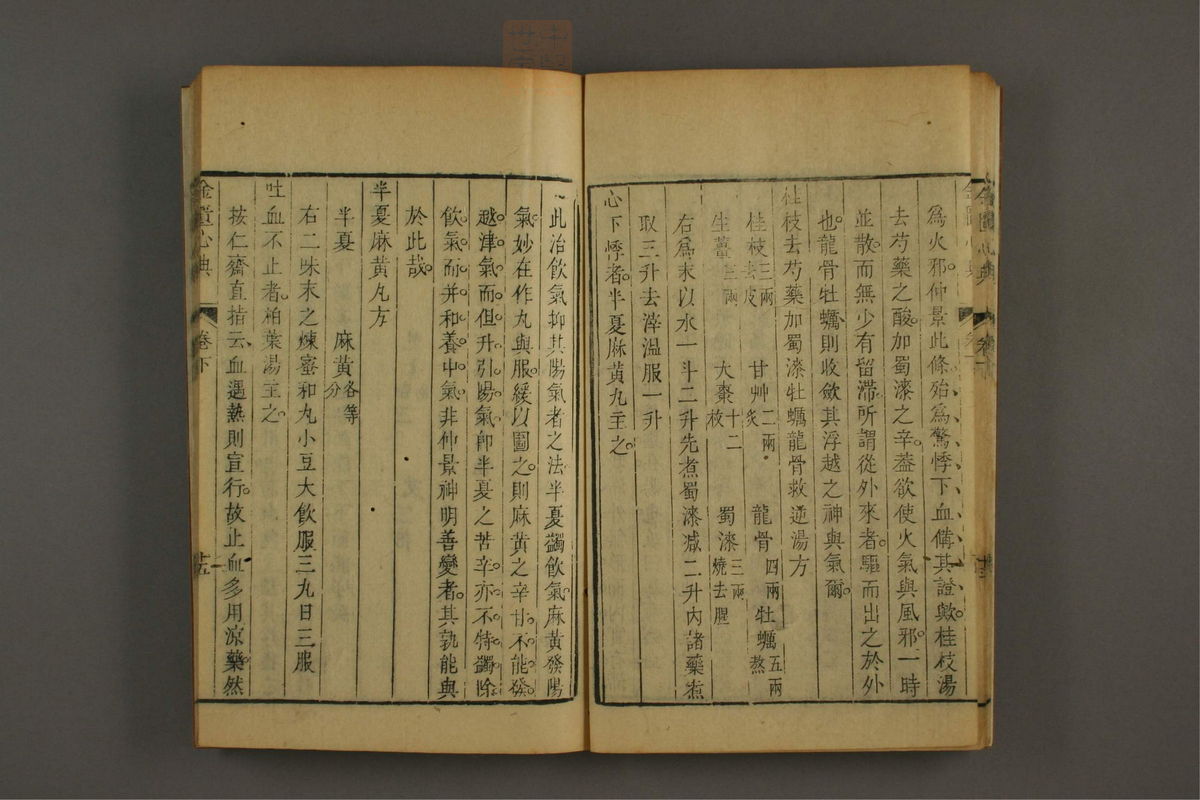 為火邪仲景此條殆為驚悸下血備其證歟桂枝湯
去芍藥之酸加蜀漆之辛葢欲使火氣與風邪一時
並散而無少有留滯所謂從外來者驅而出之於外
也龍骨牡蠣則收斂其浮越之神與氣爾
桂枝去芍藥加蜀漆牡蠣龍骨救逆湯方
桂枝三兩去皮 甘艸二兩炙 龍骨四兩 牡蠣五兩熬
生薑三兩 大棗十二枚 蜀漆三兩燒去腥
右為末以水一斗二升先煮蜀漆減二升內諸藥煮
取三升去滓溫服一升
心下悸者半夏麻黃丸主之
此治飲氣抑其陽氣者之法半夏蠲飲氣麻黃發陽
氣妙在作丸與服緩以圖之則麻黃之辛甘不能發
越津氣而但升引陽氣卽半夏之苦辛亦不特蠲除
飲氣而并和養中氣非仲景神明善變者其孰能與
於此哉
半夏麻黃丸方
半夏 麻黃各等分
右二味末之煉蜜和丸小豆大飲服三丸日三服
吐血不止者柏葉湯主之
按仁齋直指云血遇熱則宣行故止血多用涼藥然
金匱心典 卷下 廿五